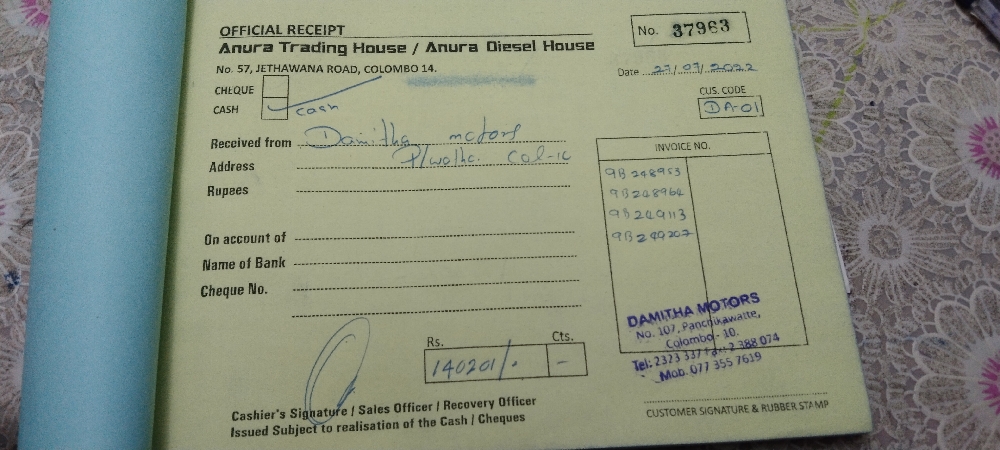 OFFICIAL RECEIPT
No. 37963
Anura Trading House / Anura Diesel House
No. 57, JETHAWANA ROAD, COLOMBO 14.
Date 27/07/2022
CHEQUE
CASH cash
CUS. CODE
DA-01
Received from Damitha motors
Address P/watha. Col-10
Rupees
On account of
Name of Bank
Cheque No.
INVOICE NO.
9B 248953
9B 248964
9B 249113
9B 249207
Rs. Cts.
140201/. -
DAMITHA MOTORS
No. 107, Panchikawatte,
Colombo - 10.
Tel: 2323 337 Fax: 2 388 074
Mob. 077 355 7619
Cashier's Signature / Sales Officer / Recovery Officer
Issued Subject to realisation of the Cash / Cheques
CUSTOMER SIGNATURE & RUBBER STAMP